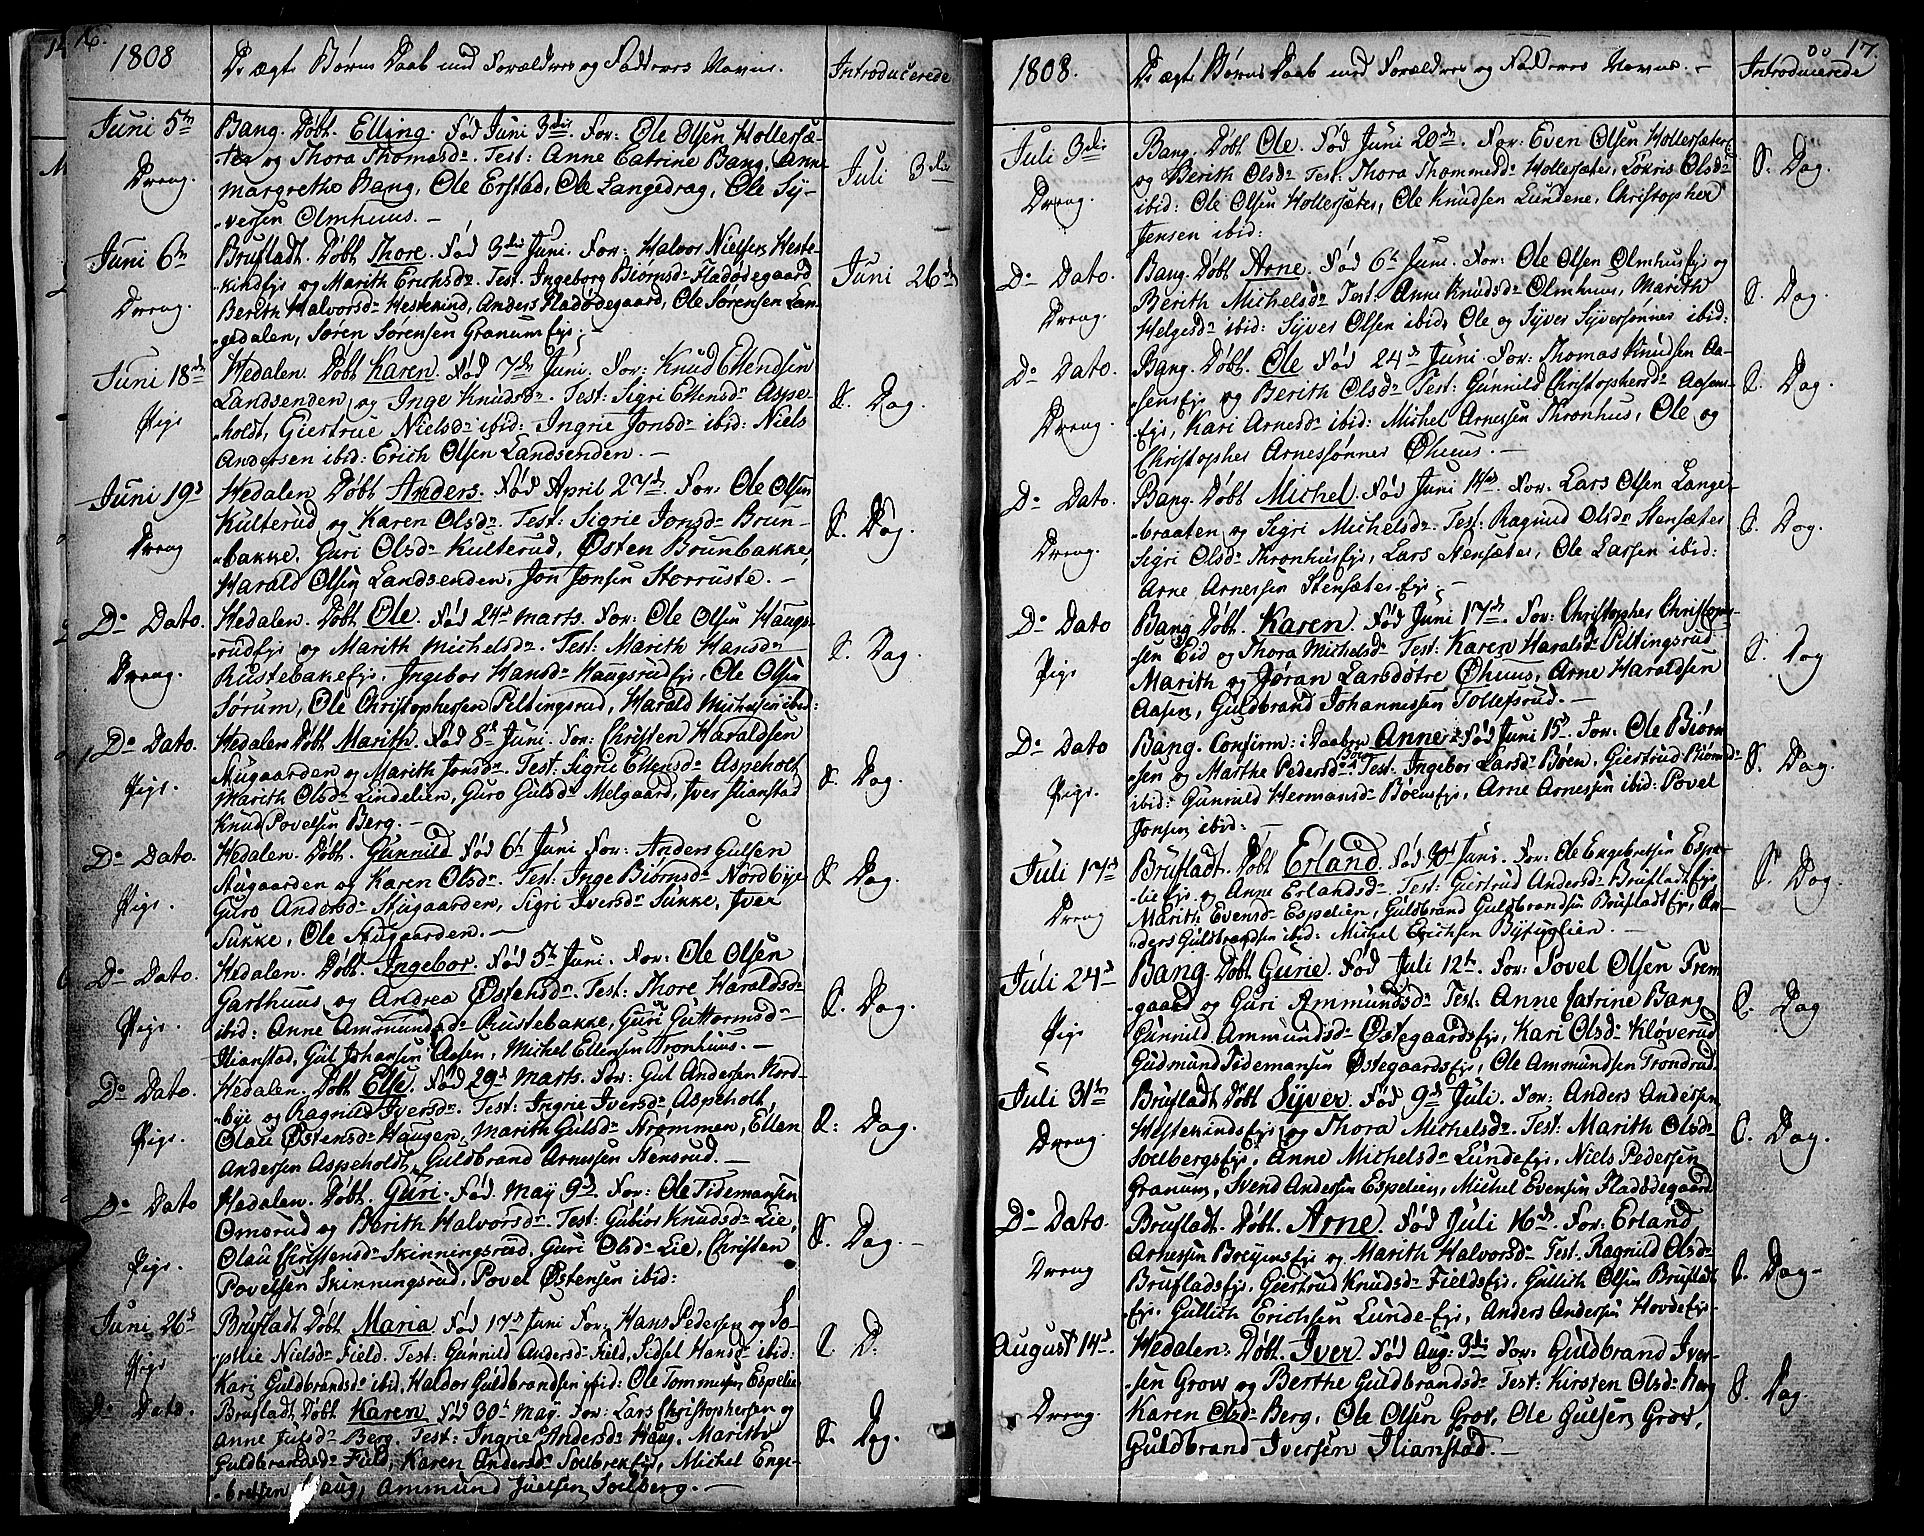 16.
1808
De ægte Børns Daab med Forældres og Fadderes Navne.
Introducerede
Juni 5te
Dreng.
Bang. Døbt. Elling. Fød Juni 3die. For: Ole Olsen Hollersæ-
-ter og Thora Thomasdr. Test: Anne Catrine Bang, Anne
Margrethe Bang, Ole Erstad, Ole Langedrag, Ole Sy-
-versen Olmhuus. -
Juli 3die
Juni 6te
Dreng.
Brufladt. Døbt Thore. Fød 3die Juni. For: Halvor Nielsen Heste-
kindejs og Marith Erichsdr. Test: Ingeborg Biørnsdr Fladødegaard
Berith Halvorsdr Hestekind, Anders Fladødegaard, Ole Sørensen Lan-
gedalen, Søren Sørensen Granum Ejs;
Juni 26de
Juni 18de
Pige
Hedalen. Døbt Karen. Fød 7de Juni. For: Knud Ellendsen
Landsenden og Inge Knudsdr. Test: Sigri Ellensdr Aspe-
-holdt, Giertrue Nielsdr ibid: Ingrie Jonsdr ibid: Niels
Andersen ibid: Erich Olsen Landsenden. -
S. Dag.
Juni 19d
Dreng
Hedalen. Døbt Anders. Fød April 27de. For: Ole Olsen
Kulterud og Karen Olsdr. Test: Sigrie Jonsdr Brun-
-bakke, Guri Olsdr Kulterud, Østen Brunbakke,
Harald Olsen Landsenden, Jon Jonsen Storruste. -
S. Dag.
Do Dato.
Dreng.
Hedalen. Døbt Ole. Fød 24d Marts. For: Ole Olsen Haugs-
-rudejs og Marith Michelsdr. Test: Marith Hansdr
Rustebakeejs, Ingebor Hansdr Haugsrudejs, Ole Olsen
Sørum, Ole Christophersen Peltingsrud, Harald Michelsen ibid:
S. Dag.
Do Dato.
Pige.
Hedalen Døbt Marith. Fød 8d Juni. For: Christen Haraldsen
Stugaarden og Marith Jonsdr. Test: Sigrie Ellensdr Aspeholt
Marith Olsdr Lindelien, Guro Gulsdr Melgaard, Iver Ilianstad
Knud Povelsen Berg. -
S. Dag.
Do Dato.
Pige.
Hedalen. Døbt. Gunnild Fød 6t Juni For: Anders Gulsen
Stugaarden og Karen Olsdr. Test: Inge Biørnsdr Nordbye
Guro Andersdr Stugaarden, Sigri Iversdr Sukke, Iver
Sukke, Ole Stugaarden. -
S. Dag.
Do Dato.
Pige.
Hedalen. Døbt. Ingebor. Fød 5t Juni. For: Ole Olsen
Garthuus og Andrea Østensdr. Test: Thore Haraldsdr
ibid: Anne Ammundsdr Rustebakke, Guri Guttormsdr
Ilianstad, Gul Johansen Aasen, Michel Ellensen Tronhuus. -
S. Dag.
Do Dato.
Pige.
Hedalen. Døbt Else. Fød 29d Marts. For: Gul Andersen Nord-
-bye og Ragnild Iversdr. Test: Ingrie Iversdr Aspeholt,
Olau Østensdr Haugen, Marith Gulsdr Strømmen, Ellen
Andersen Aspeholdt, Guldbrand Arnesen Stensrud. -
S. Dag.
Do Dato
Pige.
Hedalen. Døbt. Guri. Fød. May 9d. For: Ole Tidemansen
Omsrud og Berith Halvorsdr. Test: Gubiør Knudsdr Lie,
Olau Christensdr Skinningsrud, Guri Olsdr Lie, Christen
Povelsen Skinningsrud, Povel Østensen ibid:
S. Dag. -
Juni 26d
Pige
Brufladt Døbt Maria Fød 17d Juni For: Hans Pedersen og So-
-phie Nielsdr Field. Test: Gunnild Andersdr Field, Sidsel Hansdr ibid:
Kari Guldbrandsdr ibid, Haldor Guldbrandsen ibid: Ole Tommesen Espelie
S. D:
Do Dato.
Brufladt, Døbt Karen Fød 30t May. For: Lars Christophersen og
Anne Julsdr Berg. Test: Ingrie Andersdr Haug, Marith
Guldbrandsdr Field, Karen Andersdr Soelbrekejs, Michel Enge-
-bretsen Haug, Ammund Juelsen Soelberg. -
S. Dag.
17.
1808.
De ægte Børns Daab med Forældres og Fadderes Navne. -
Introducerede
Juli 3die
Dreng.
Bang. Døbt Ole. Fød Juni 20de. For: Even Olsen Hollersæter
og Berith Olsdr Test: Thora Thommesdr Hollersæter, Lokris Olsdr
ibid: Ole Olsen Hollersæter, Ole Knudsen Lundene, Christopher
Jensen ibid:
S. Dag.
Do Dato.
Dreng.
Bang. Døbt Arne. Fød 6te Juni. For: Ole Olsen Olmhusejs og
Berith Michelsdr Test: Anne Knudsdr Olmhuus, Marith
Helgesdr ibid: Syver Olsen ibid, Ole og Syver Syversønner ibid:
S. Dag.
Do Dato.
Dreng.
Bang. Døbt. Ole Fød 24de Juni For: Thomas Knudsen Aa-
-sensejs og Berith Olsdr Test: Gunnild Christophersdr Aasens-
-Ejs, Kari Arnesdr ibid: Michel Arnesen Thronhus, Ole og
Christopher Arnessønner Øhuus. -
S. Dag.
Do Dato.
Dreng.
Bang. Døbt Michel. Fød Juni 14de. For. Lars Olsen Lange-
braaten og Sigri Michelsdr Test: Ragnild Olsdr Stensæter
Sigri Olsdr Thronhusejs, Lars Stensæter, Ole Larsen ibid:
Arne Arnessen Stensæter Ejs; -
S. Dag.
Do Dato
Pige
Bang Døbt. Karen. Fød Juni 17de. For: Christopher Christopher-
-sen Eid og Thora Michelsdr Test: Karen Haralsdr Peltingsrud
Marith og Jøran Larsdøtre Øhuus, Arne Haraldsen
Aasen, Guldbrand Johannessen Tollefsrud. -
S. Dag
Do Dato
Pige.
Bang. Confirm: i Daaben Anne Fød Juni 15d. For: Ole Biørn
-sen og Marthe Pedersdr Test: Ingebor Larsdr Bøen, Giertrud Biørnsdr
ibid: Gunnild Hermansdr Bøensejs, Arne Arnessen ibid: Povel
Jonsen ibid: -
S. Dag.
Juli 17d
Dreng
Brufladt. Døbt Erland. Fød 20d Juni. For: Ole Engebretsen Espe-
-lie Ejs og Anne Erlandsdr Test: Giertrud Andersdr Brufladt Ejs
Marith Evensdr Espelien, Guldbrand Guldbrandsen Brufladt Ejs, An-
-ders Guldbrandsen ibid: Michel Erichsen Bytuglien. -
S. Dag.
Juli 24d
Pige
Bang Døbt Gurie. Fød Juli 12te. For: Povel Olsen Frem-
-gaard og Guri Ammundsdr Test: Anne Catrine Bang
Gunnild Ammundsdr Østegaardsejs, Kari Olsdr Kløverud
Gudmund Tidemansen Østegaardsejs, Ole Ammundsen Trondrud
S. Dag
Juli 31te
Dreng.
Brufladt Døbt Syver. Fød 9d Juli. For: Anders Andersen
Hestekindsejs og Thora Michelsdr. Test: Marith Olsdr
Soelbergsejs, Anne Michelsdr Lundeejs, Niels Pedersen
Granum, Svend Andersen Espelien, Michel Evensen Fladødegaard
S. Dag.
Do Dato.
Dreng
Brufladt. Døbt. Arne. Fød Juli 16de. For: Erland
Arnessen Breyensejs og Marith Halvorsdr Test. Ragnild Olsdr
Brufladsejs, Giertrud Knudsdr Fieldsejs, Gullich Olsen Brufladt
Ejs, Gullich Erichsen Lunde Ejs, Anders Andersen Hovdeejs.
S. Dag-
August 14d.
Dreng.
Hedalen. Døbt. Iver Fød Aug: 3die For: Guldbrand Iver-
-sen Grov og Berthe Guldbrandsdr Test: Kirsten Olsdr Berg
Karen Olsdr Berg, Ole Olsen Grov, Ole Gulsen Grov,
Guldbrand Iversen Ilianstad. -
S. Dag.